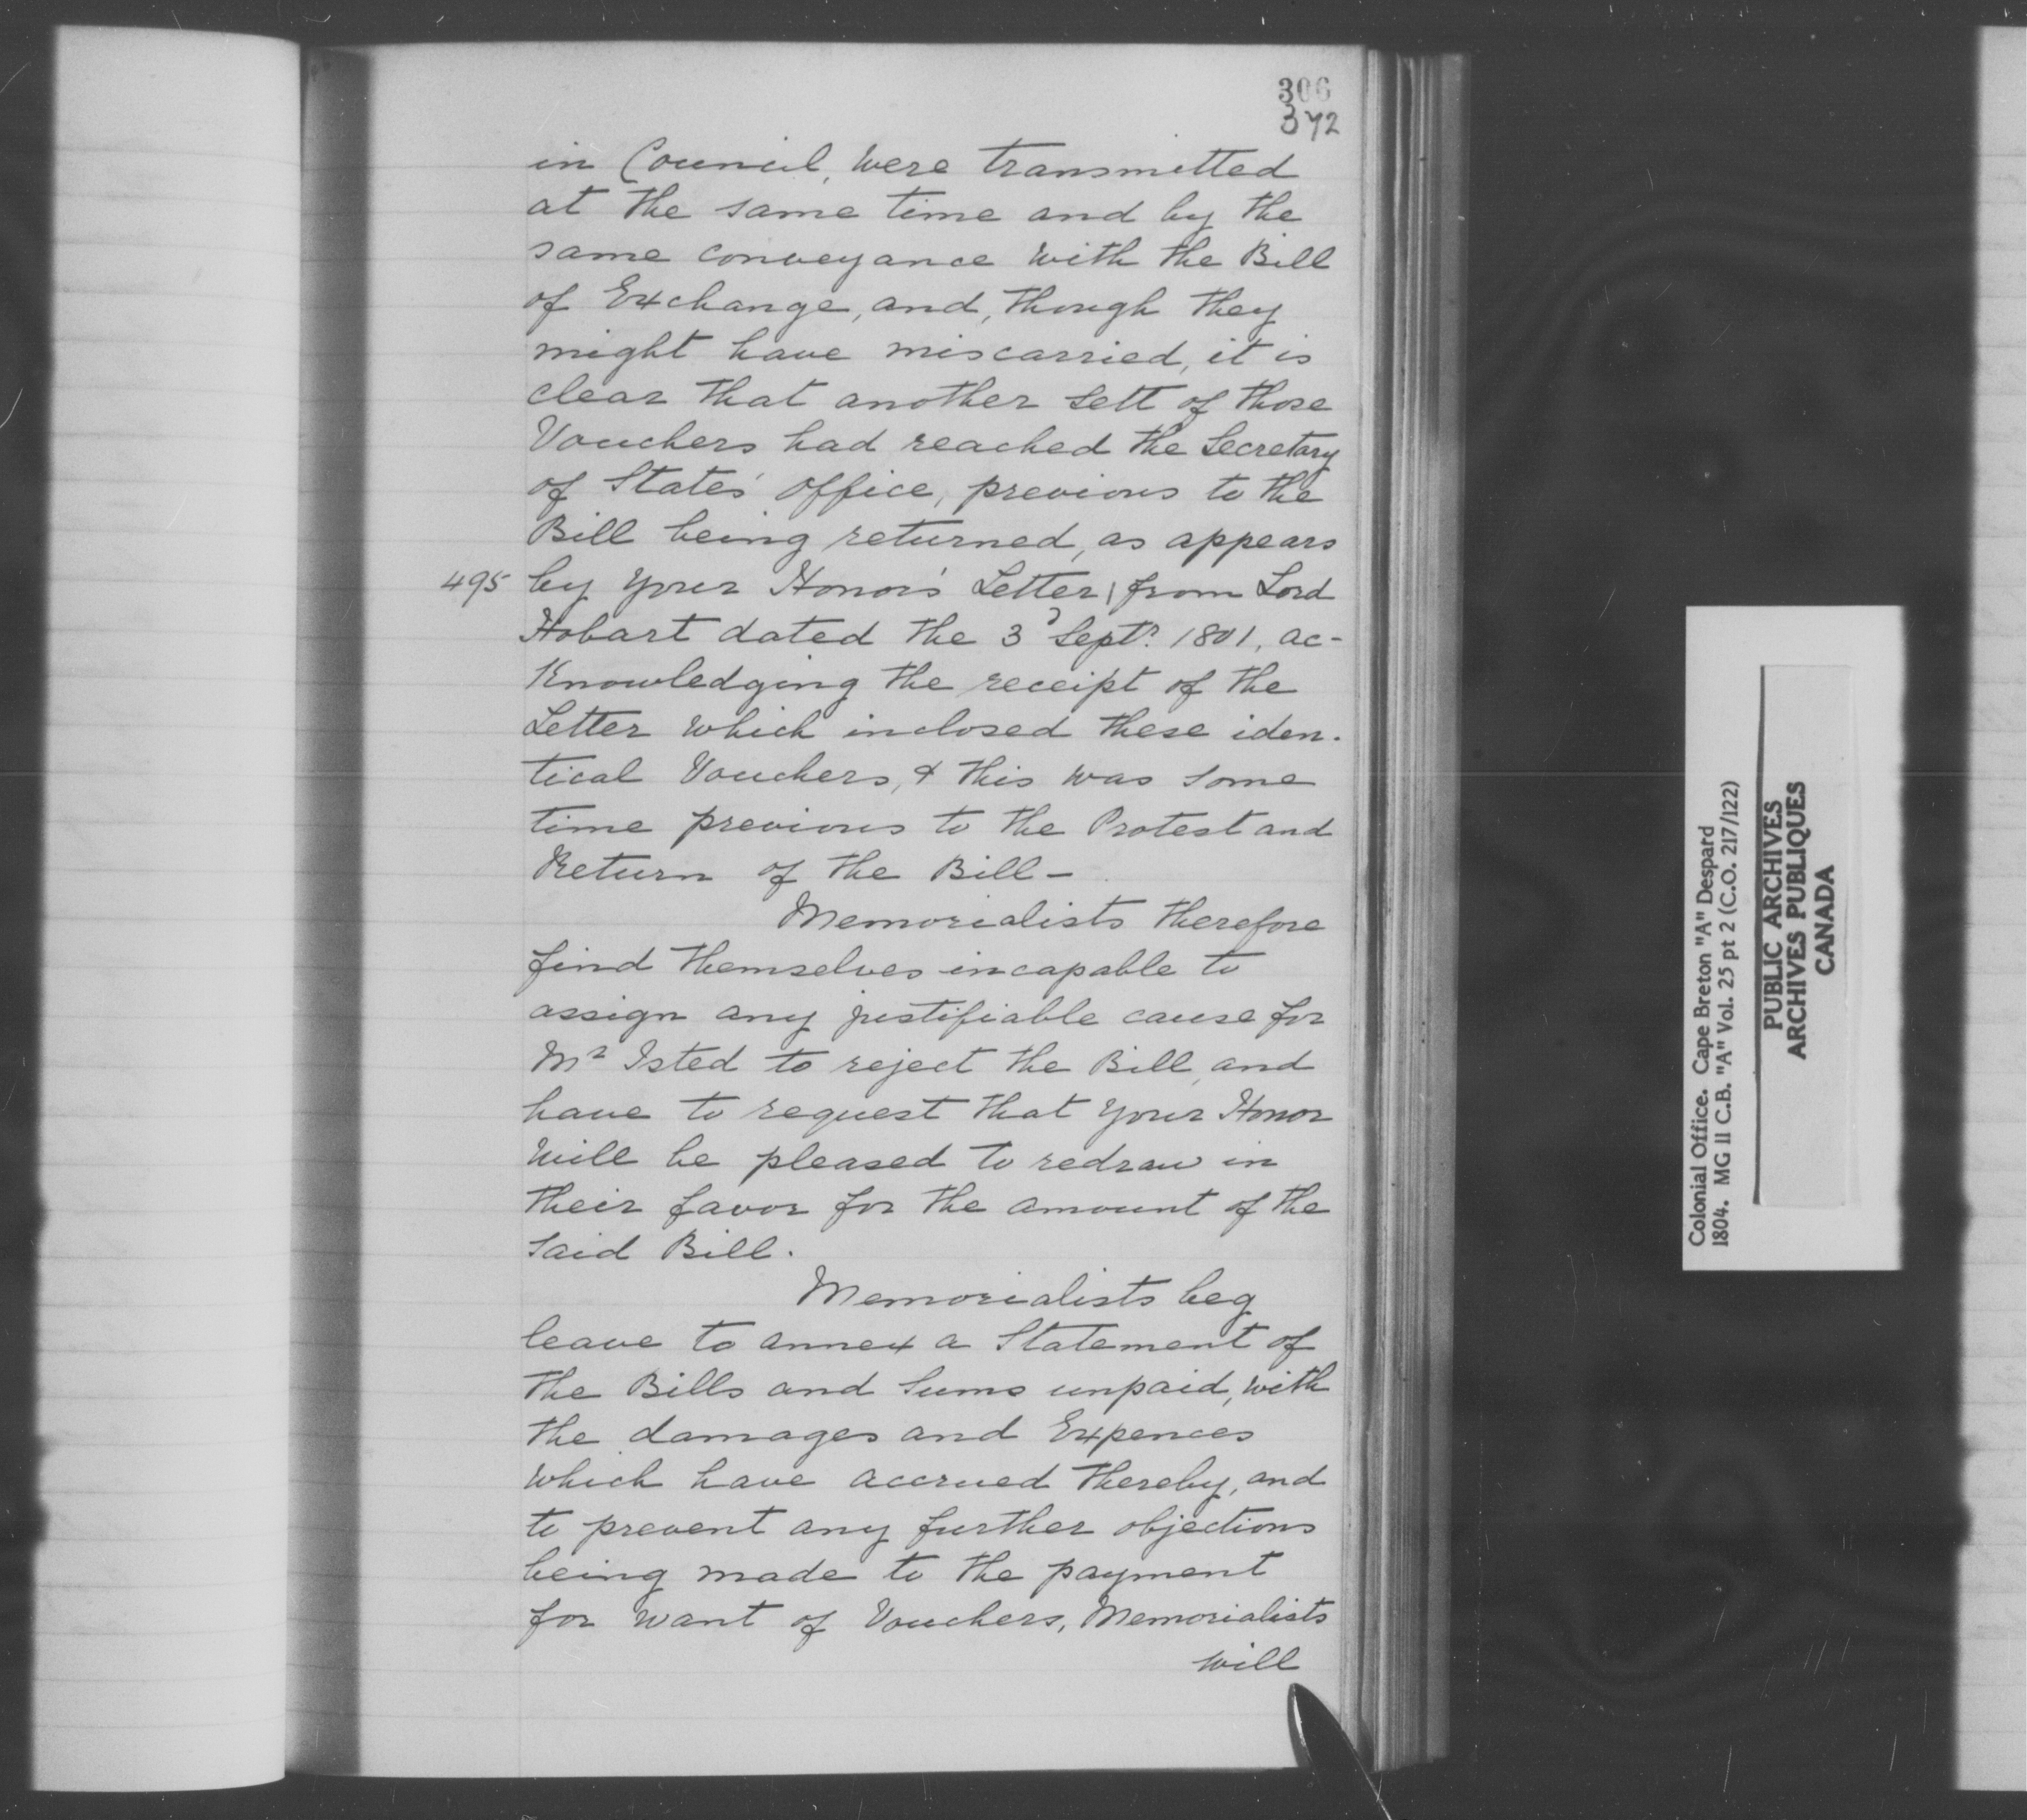 306
372
in Council, were transmitted
at the same time and by the
same conveyance with the Bill
of Exchange, and, though they
might have miscarried, it is
clear that another sett of those
Vouchers had reached the Secretary
of States' office, previous to the
Bill being returned, as appears
495 by your Honor's Letter, from Lord
Hobart dated the 3d Septr. 1801, ac-
knowledging the receipt of the
Letter which inclosed these iden-
tical Vouchers, & this was some
time previous to the Protest and
Return of the Bill —
Memorialists therefore
find themselves incapable to
assign any justifiable cause for
Mr Isted to reject the Bill, and
have to request that your Honor
will be pleased to redraw in
their favor for the amount of the
said Bill.
Memorialists beg
leave to annex a Statement of
the Bills and Sums unpaid, with
the damages and Expences
which have accrued thereby, and
to prevent any further objections
being made to the payment
for want of Vouchers, Memorialists
will
Colonial Office. Cape Breton "A" Despard
1804. MG 11 C.B. "A" Vol. 25 pt 2 (C.O. 217/122)
PUBLIC ARCHIVES
ARCHIVES PUBLIQUES
CANADA